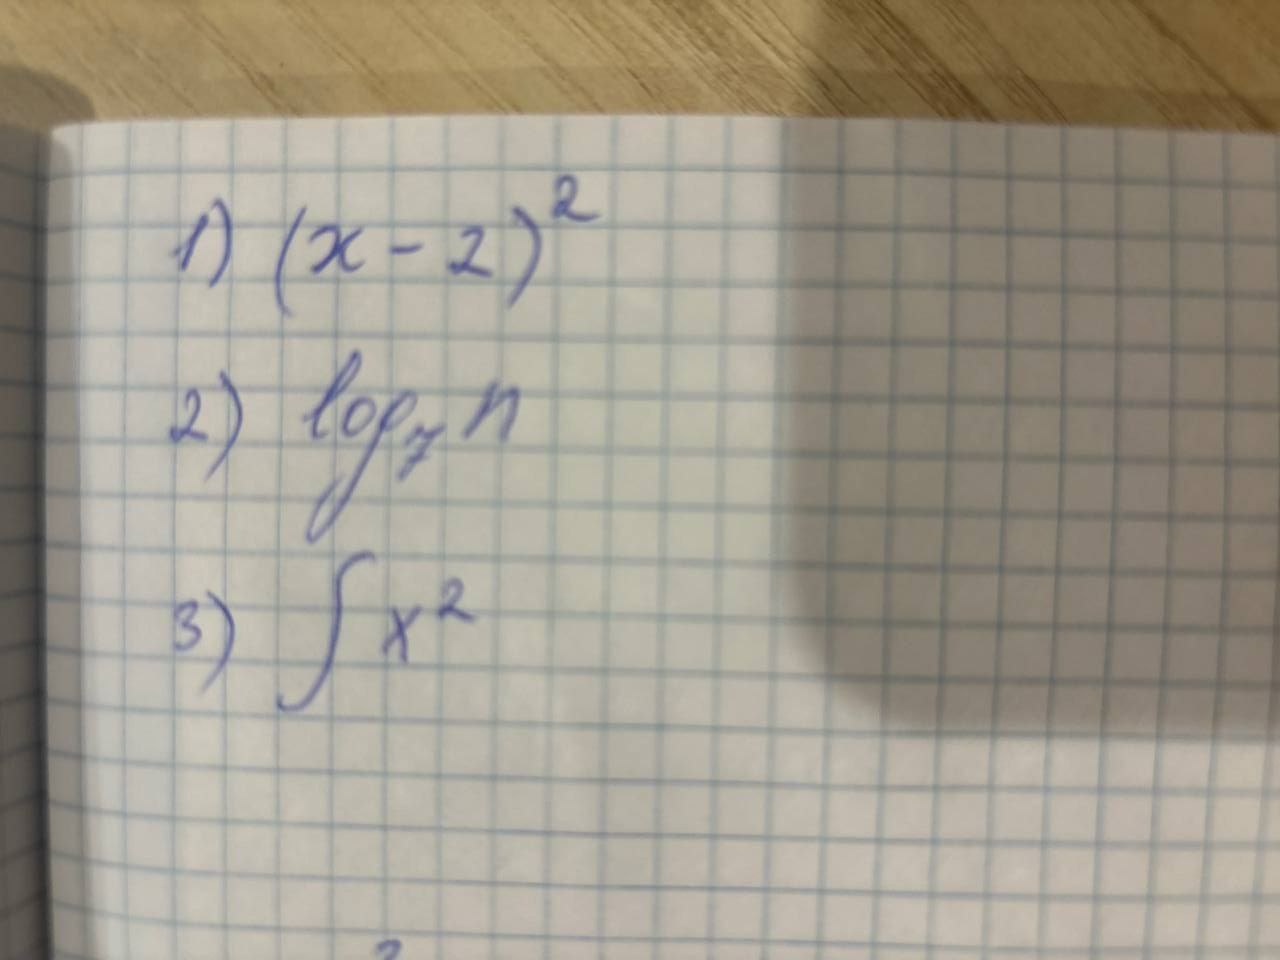 1) (x - 2)²
2) log₇ n
3) ∫ x²